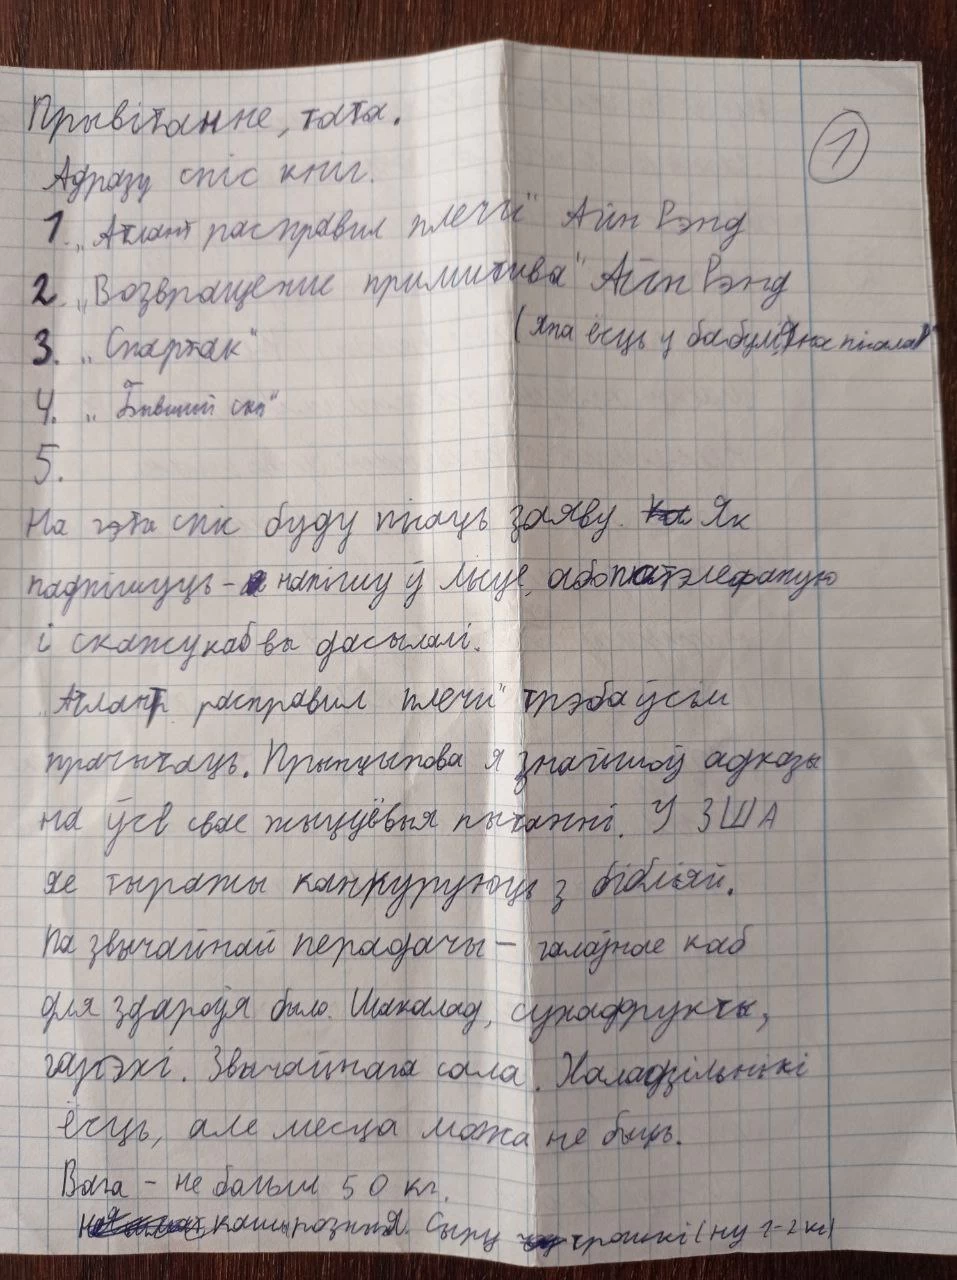 Прывітанне, тата.
1
Адразу спіс кніг.
1. „Атлант расправил плечи" Айн Рэнд
2. „Возвращение примитива" Айн Рэнд
(яна ёсць у бабулі, яна пісала)
3. „Спартак"
4. „Бывший сын"
5.
На гэты спіс буду пісаць заяву. Як
падпішуць - напішу ў лісце, або патэлефаную
і скажу каб вы дасылалі.
„Атлант расправил плечи" трэба ўсім
прачытаць. Прынцыпова я знайшоў адказы
на ўсе свае жыццёвыя пытанні. У ЗША
яе тыражы канкуруюць з бібліяй.
Па звычайнай перадачы - галоўнае каб
для здароўя было. Шакалад, сухафрукты,
гарэхі. Звычайнага сала. Халадзільнікі
ёсць, але месца можа не быць.
Вага - не больш 50 кг.
Сыру трошкі (ну 1-2 кг)